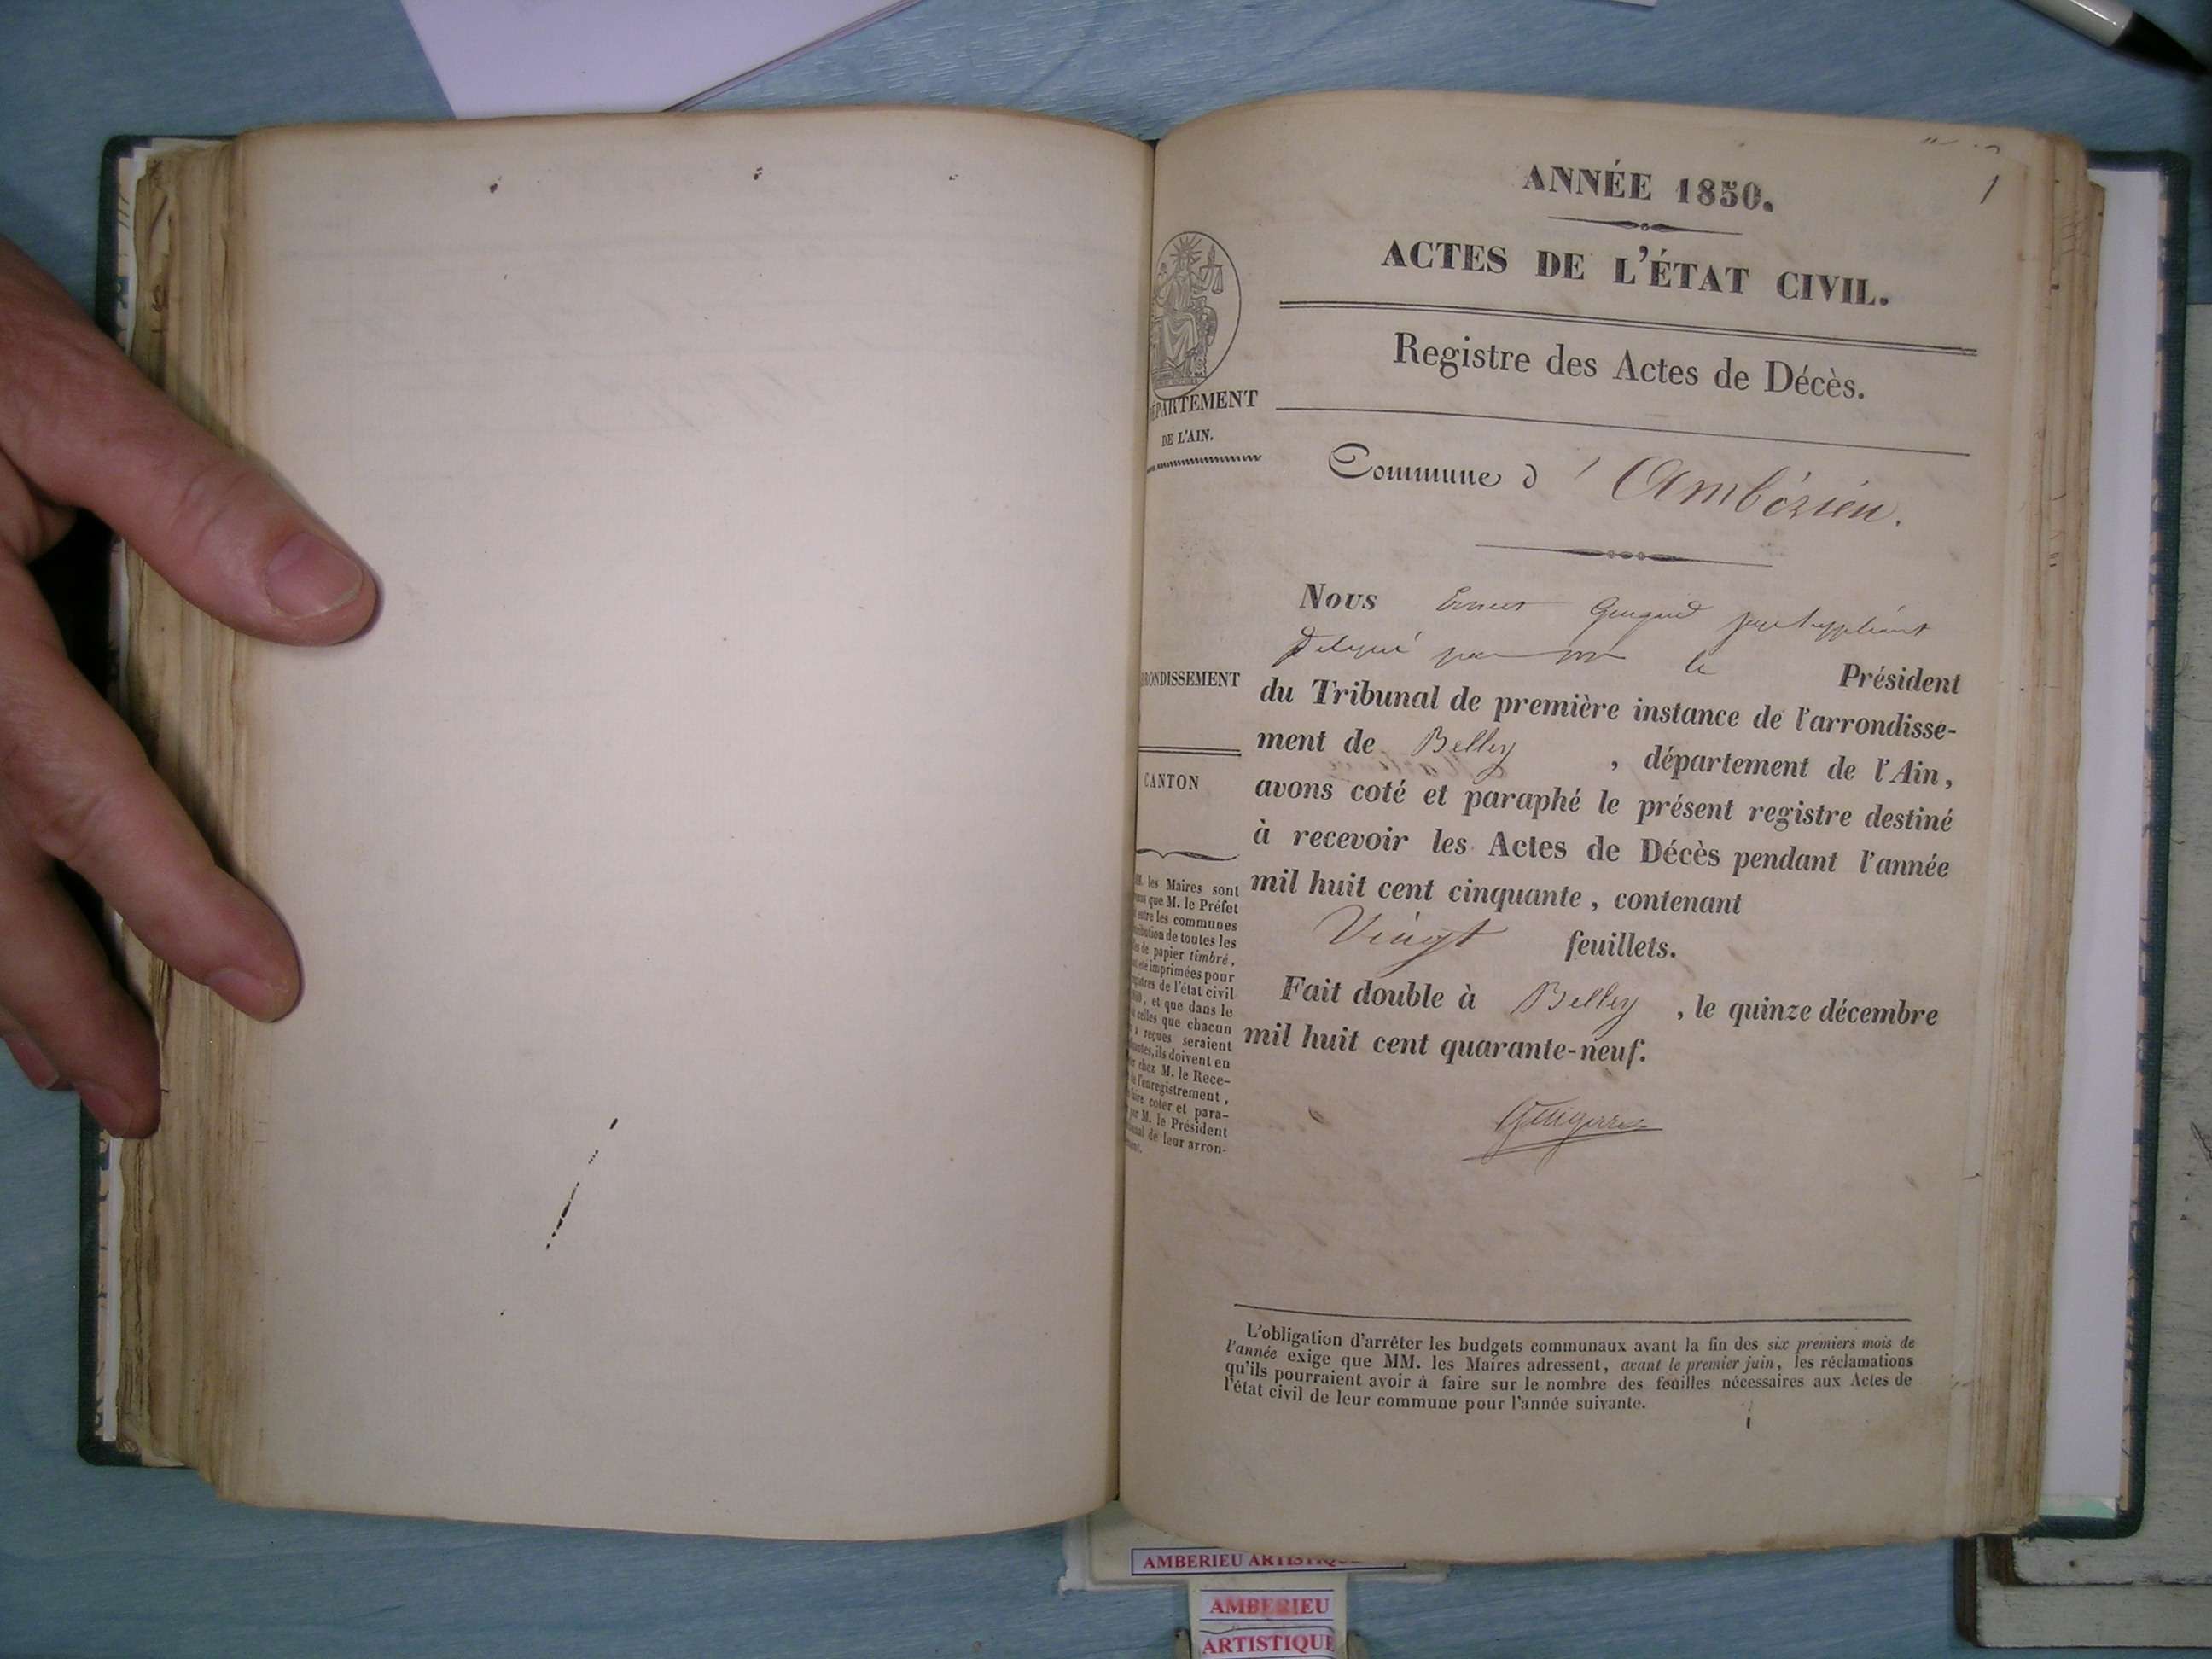 1
ANNÉE 1850.
ACTES DE L'ÉTAT CIVIL.
Registre des Actes de Décès.
DÉPARTEMENT
DE L'AIN.
Commune d'Ambérieu.
Nous Ernest juge suppléant
délégué par Mr le Président
du Tribunal de première instance de l'arrondisse-
ment de Belley, département de l'Ain,
avons coté et paraphé le présent registre destiné
à recevoir les Actes de Décès pendant l'année
mil huit cent cinquante, contenant
Vingt feuillets.
Fait double à Belley, le quinze décembre
mil huit cent quarante-neuf.
RONDISSEMENT
CANTON
M. les Maires sont
que M. le Préfet
entre les communes
de toutes les
de papier timbré,
été imprimées pour
de l'état civil
, et que dans le
celles que chacun
reçues seraient
ils doivent en
chez M. le Rece-
de l'enregistrement,
faire coter et para-
par M. le Président
de leur arron-
L'obligation d'arrêter les budgets communaux avant la fin des six premiers mois de
l'année exige que MM. les Maires adressent, avant le premier juin, les réclamations
qu'ils pourraient avoir à faire sur le nombre des feuilles nécessaires aux Actes de
l'état civil de leur commune pour l'année suivante.
AMBERIEU ARTISTIQUE
AMBERIEU
ARTISTIQUE